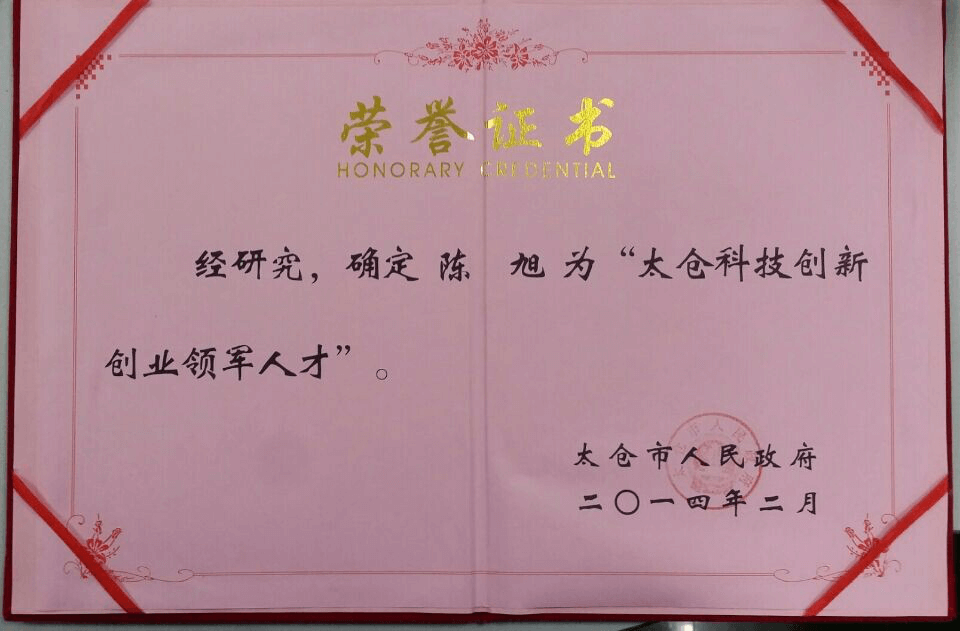 荣誉证书
HONORARY CREDENTIAL
经研究，确定 陈 旭 为“太仓科技创新
创业领军人才”。
太仓市人民政府
二〇一四年二月